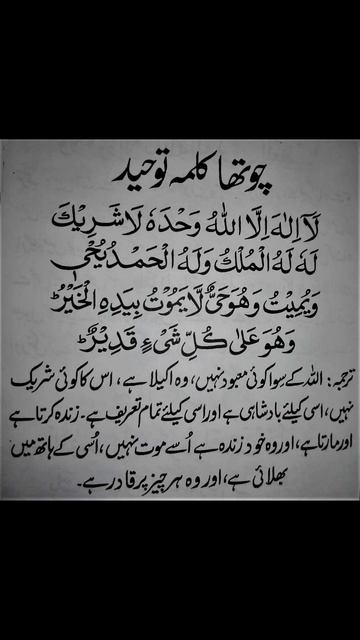 چوتھا کلمہ توحید
لَآ اِلٰهَ اِلَّا اللهُ وَحْدَهٗ لَا شَرِيْكَ
لَهٗ لَهُ الْمُلْكُ وَلَهُ الْحَمْدُ يُحْيٖ
وَيُمِيْتُ وَهُوَ حَيٌّ لَّا يَمُوْتُ بِيَدِهِ الْخَيْرُ ؕ
وَهُوَ عَلٰى كُلِّ شَيْءٍ قَدِيْرٌ ؕ
ترجمہ: اللہ کے سوا کوئی معبود نہیں، وہ اکیلا ہے، اس کا کوئی شریک
نہیں، اسی کیلئے بادشاہی ہے اور اسی کیلئے تمام تعریف ہے۔ زندہ کرتا ہے
اور مارتا ہے، اور وہ خود زندہ ہے اُسے موت نہیں، اُسی کے ہاتھ میں
بھلائی ہے، اور وہ ہر چیز پر قادر ہے۔